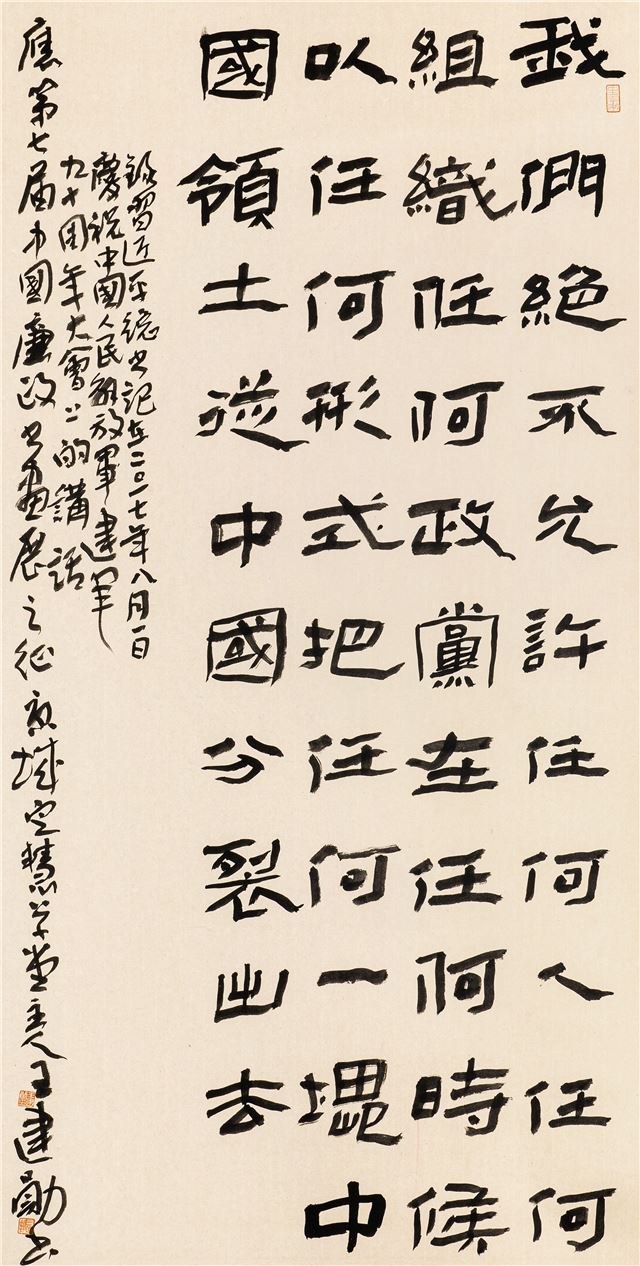 我們絕不允許任何人任何
組織任何政黨在任何時候
以任何形式把任何一塊中
國領土從中國分裂出去
錄習近平總書記在二〇一七年八月一日
慶祝中國人民解放軍建軍
九十周年大會上的講話
應第七届中國廉政書畫展之征京城定慧草堂主人王建勛書